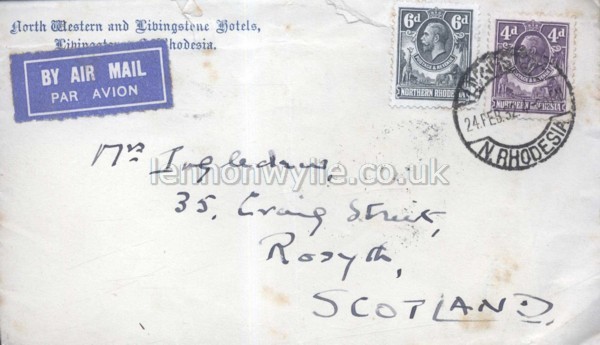 North Western and Livingstone Hotels,
Rhodesia.
BY AIR MAIL
PAR AVION
6d 6d
POSTAGE & REVENUE
NORTHERN RHODESIA
4d 4d
NORTHERN RHODESIA
24.FEB.32
N.RHODESIA
Mrs Ingledew,
lennonwylie.co.uk
35, Craig Street,
Rosyth,
SCOTLAND.